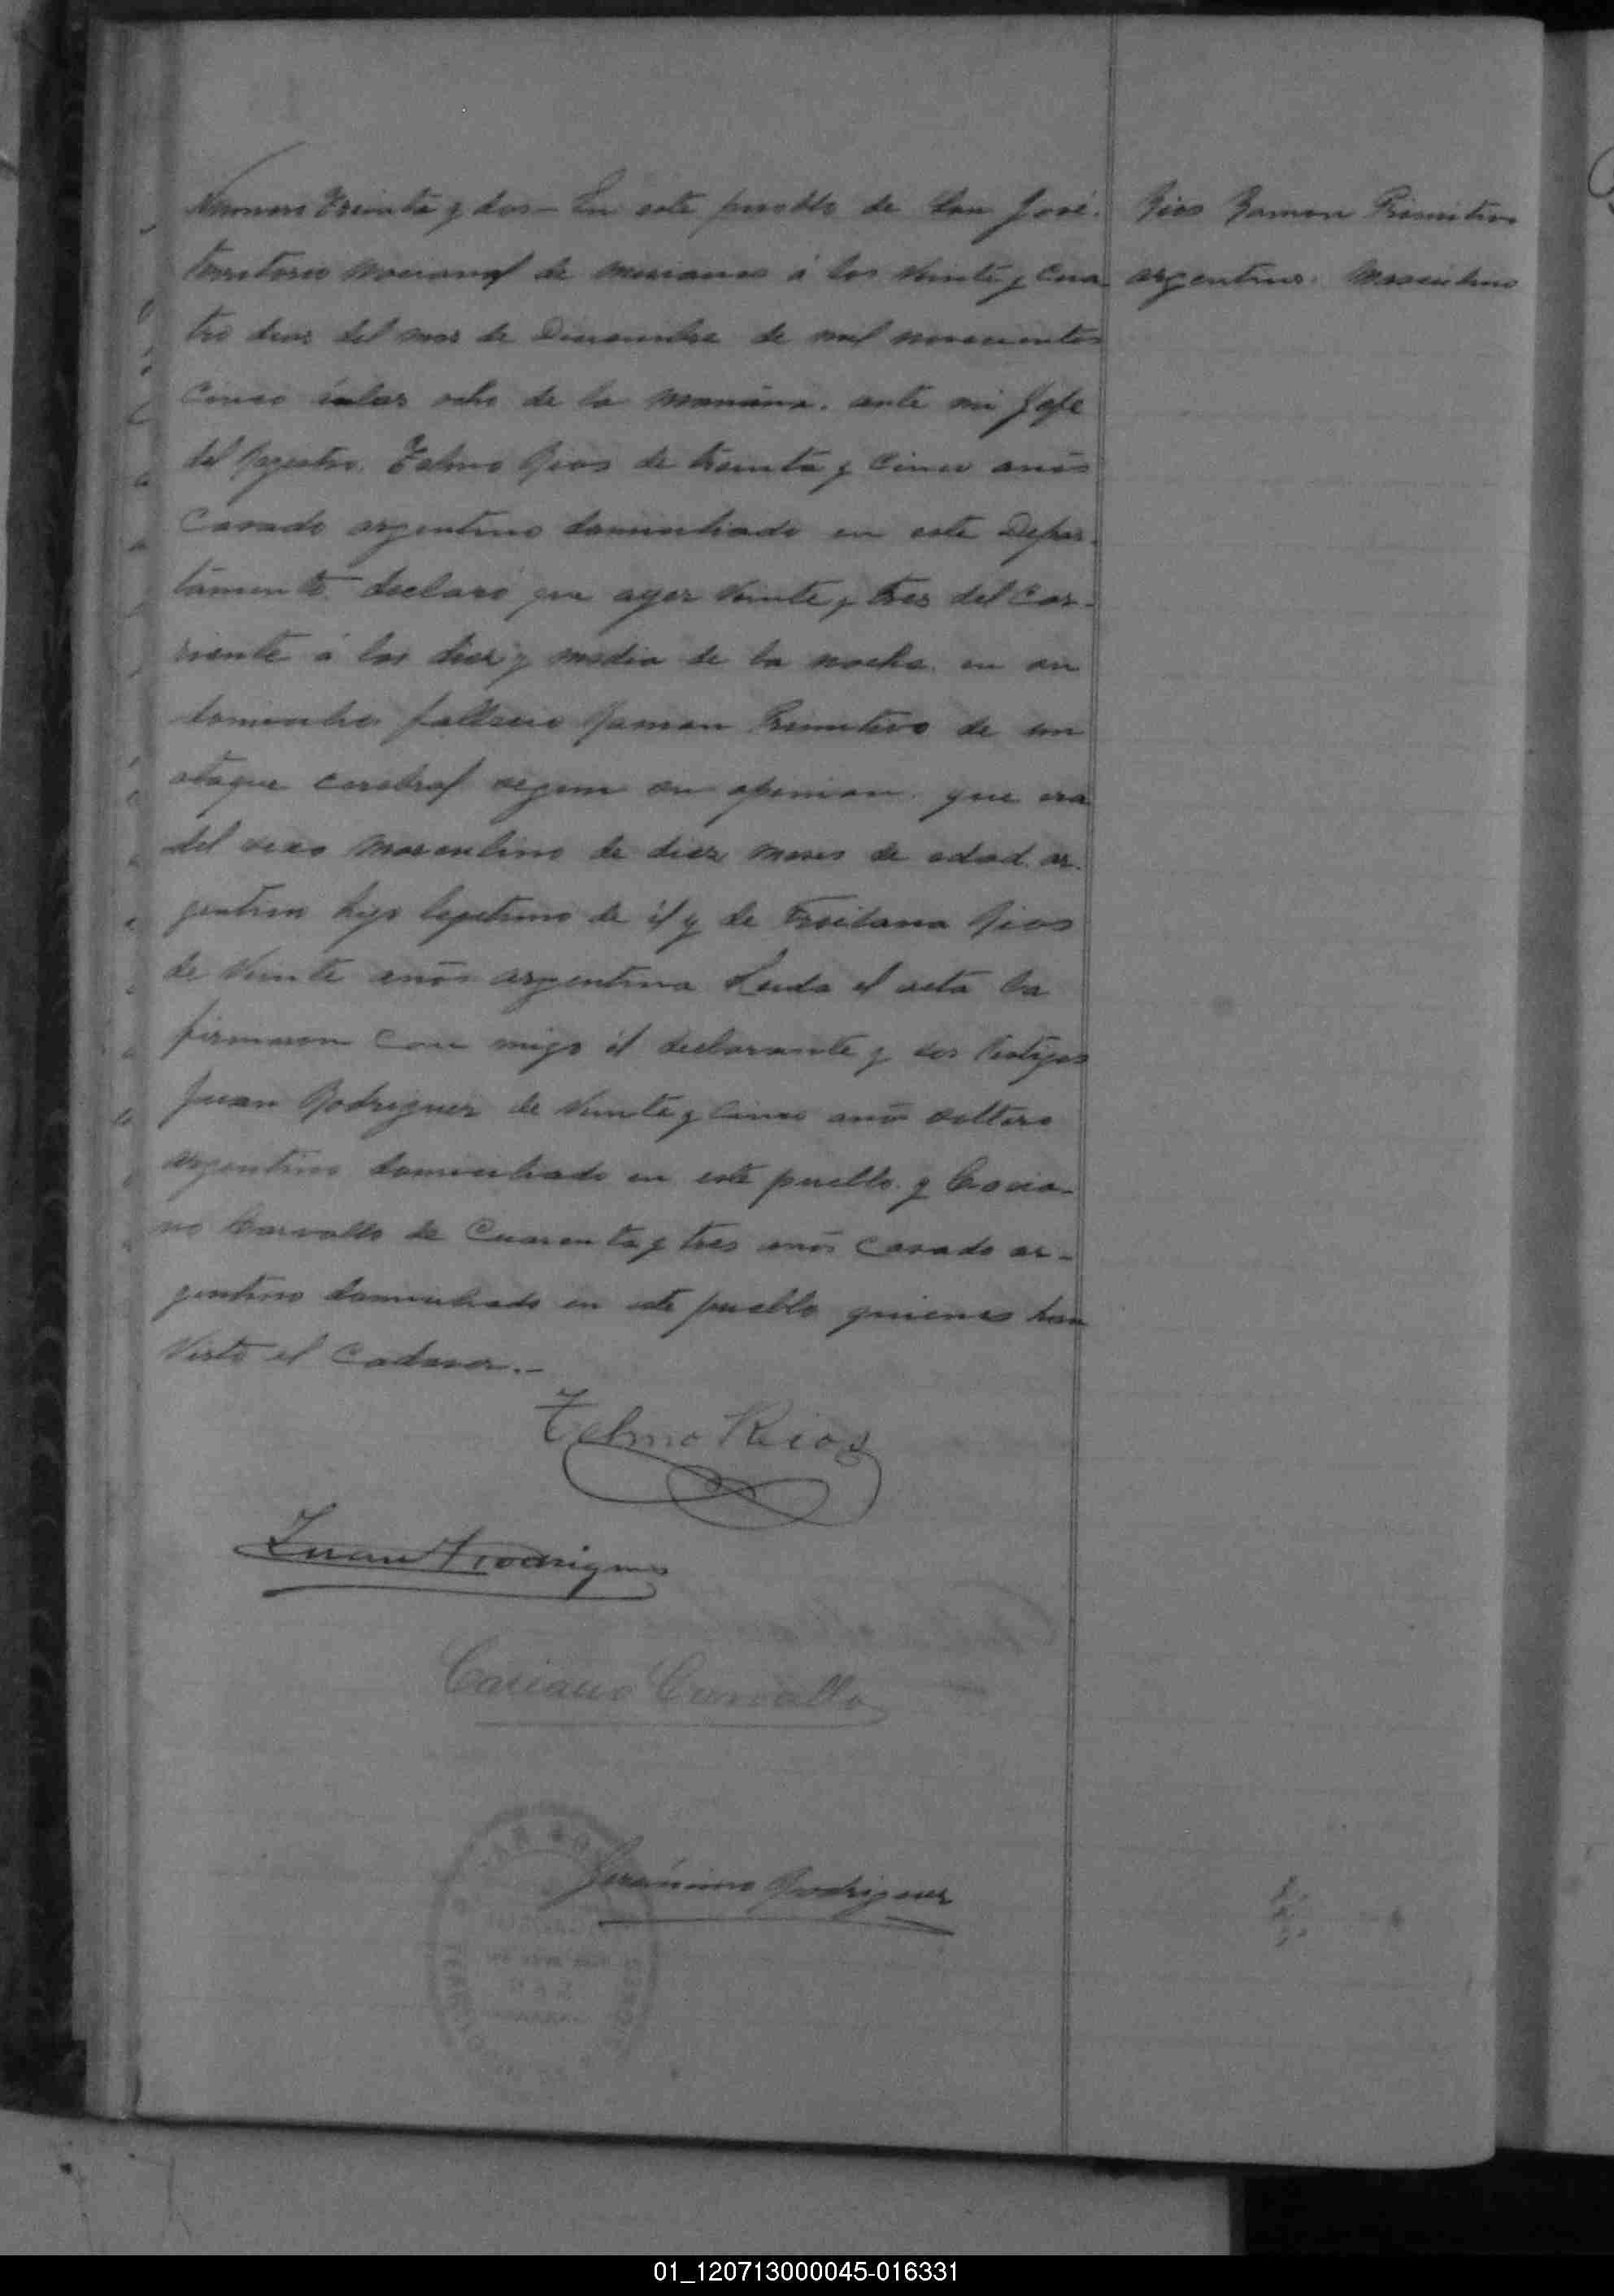 Numero Treinta y dos - En este pueblo de San José.
territorio nacional de misiones á los veinte y cua
tro dias del mes de Diciembre de mil novecientos
cinco á las ocho de la mañana. ante mi Jefe
del Registro. Telmo Rios de treinta y cinco años
Casado argentino domiciliado en este Depar-
tamento declaró que ayer veinte y tres del Cor-
riente á las diez y media de la noche. en su
domicilio fallecio Ramon Primitivo de un
ataque cerebral segun su opinion. que era
del sexo masculino de diez meses de edad ar-
gentino hijo legitimo de él y de Froilana Rios
de veinte años argentina Leida el acta la
firmaron con migo él declarante y dos testigos
Juan Rodriguez de veinte y cinco años soltero
argentino domiciliado en este pueblo. y Casia-
no Carvallo de Cuarenta y tres años Casado ar-
gentino domiciliado en este pueblo quienes han
visto el Cadaver.-
Rios Ramon Primitivo
argentino. Masculino
Telmo Rios
Juan Rodrigues
Casiano Carvallo
Gerónimo Rodriguez
01_120713000045-016331